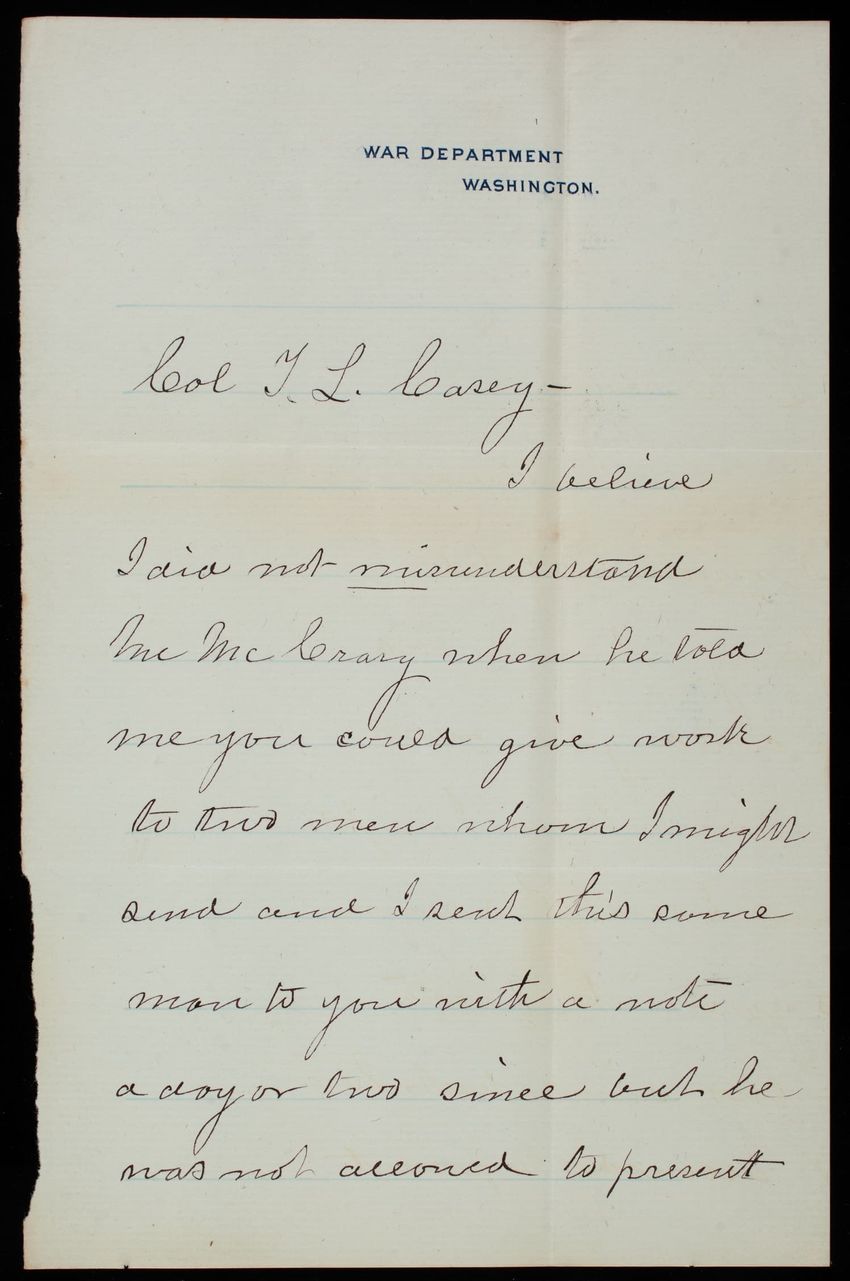 WAR DEPARTMENT
WASHINGTON.
Col T. L. Casey -
I believe
I did not misunderstand
Mr McCrary when he told
me you could give work
to two men whom I might
send and I sent this same
man to you with a note
a day or two since but he
was not allowed to present